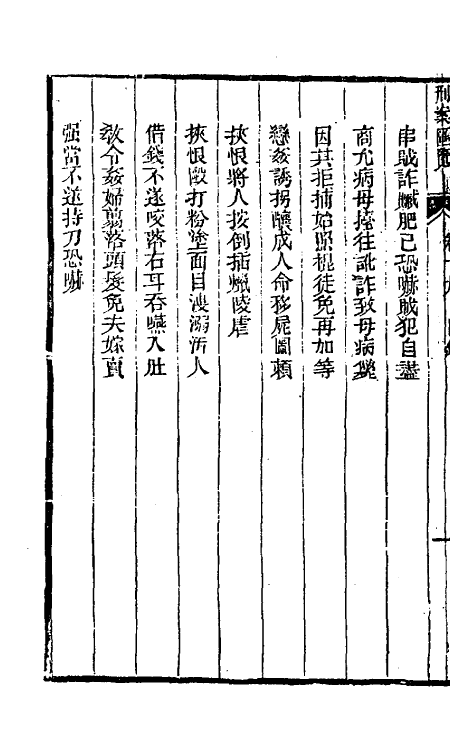 刑案匯覽
串賊詐贓肥已恐嚇賊犯自盡
商允病母擡往訛詐致母病斃
因其拒捕始照棍徒免再加等
戀姦誘拐釀成人命移屍圖賴
挾恨將人按倒插蠟陵虐
挾恨毆打粉塗面目洩溺汚人
借錢不遂咬落右耳吞嚥入肚
教令姦婦翦落頭髮免夫嫁賣
强當不遂持刀恐嚇